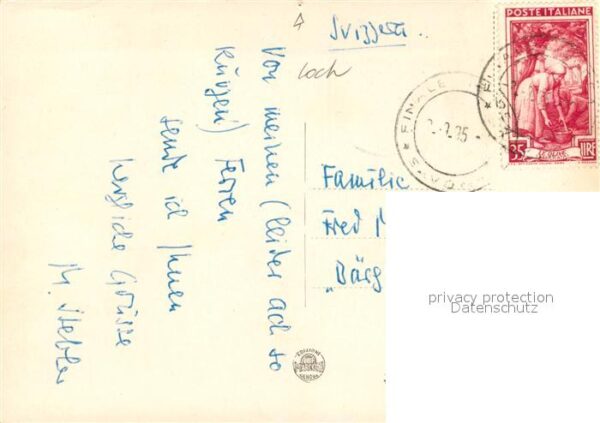 Svizzera
Loch
POSTE ITALIANE
35 LIRE
FINALE
Von meinen (leider ach so
kurzen) Ferien
sende ich Ihnen
herzliche Grüsse
M. Stebler
Familie
Fred
"Bärg
privacy protection
Datenschutz
GENOVA